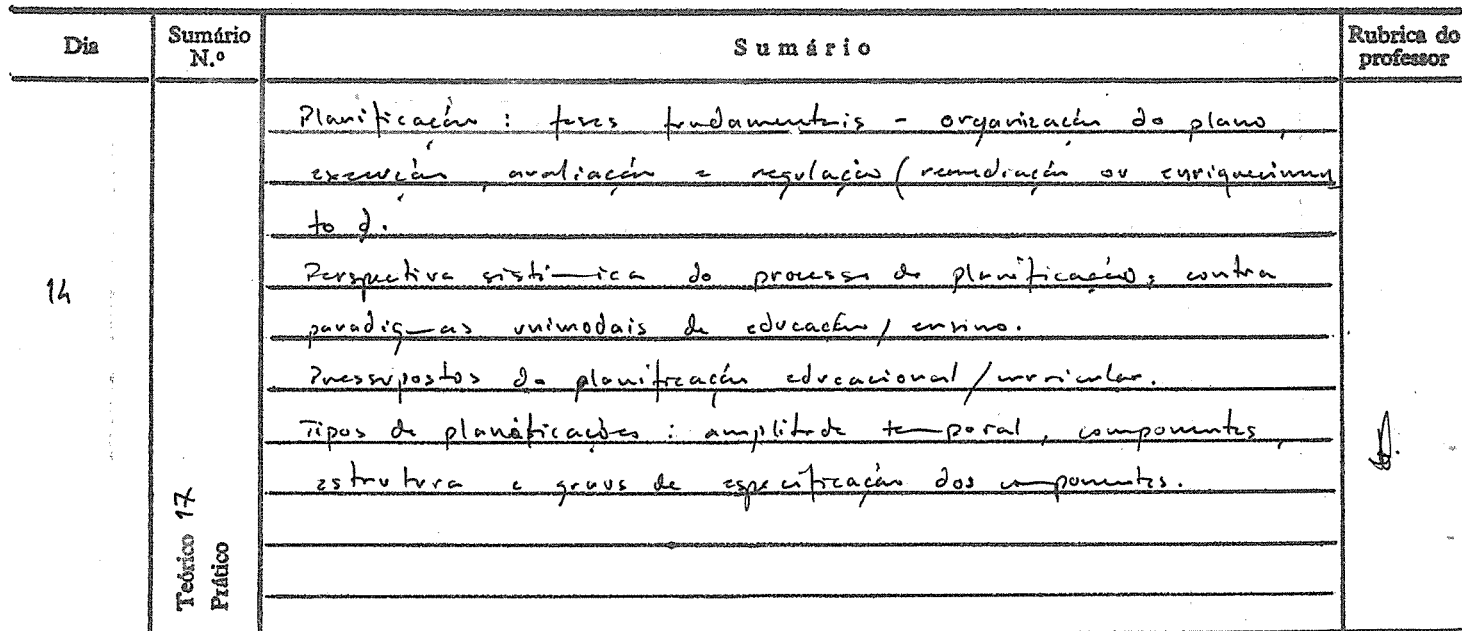 Dia
Sumário N.º
Sumário
Rubrica do professor
Planificação : fases fundamentais - organização do plano,
execução, avaliação e regulação (remediação ou enriquecimen
to).
Perspectiva sistémica do processo de planificação, contra
paradigmas unimodais de educação / ensino.
Pressupostos da planificação educacional / curricular.
Tipos de planificações : amplitude temporal, componentes,
estrutura e graus de especificação dos componentes.
14
Teórico 17
Prático